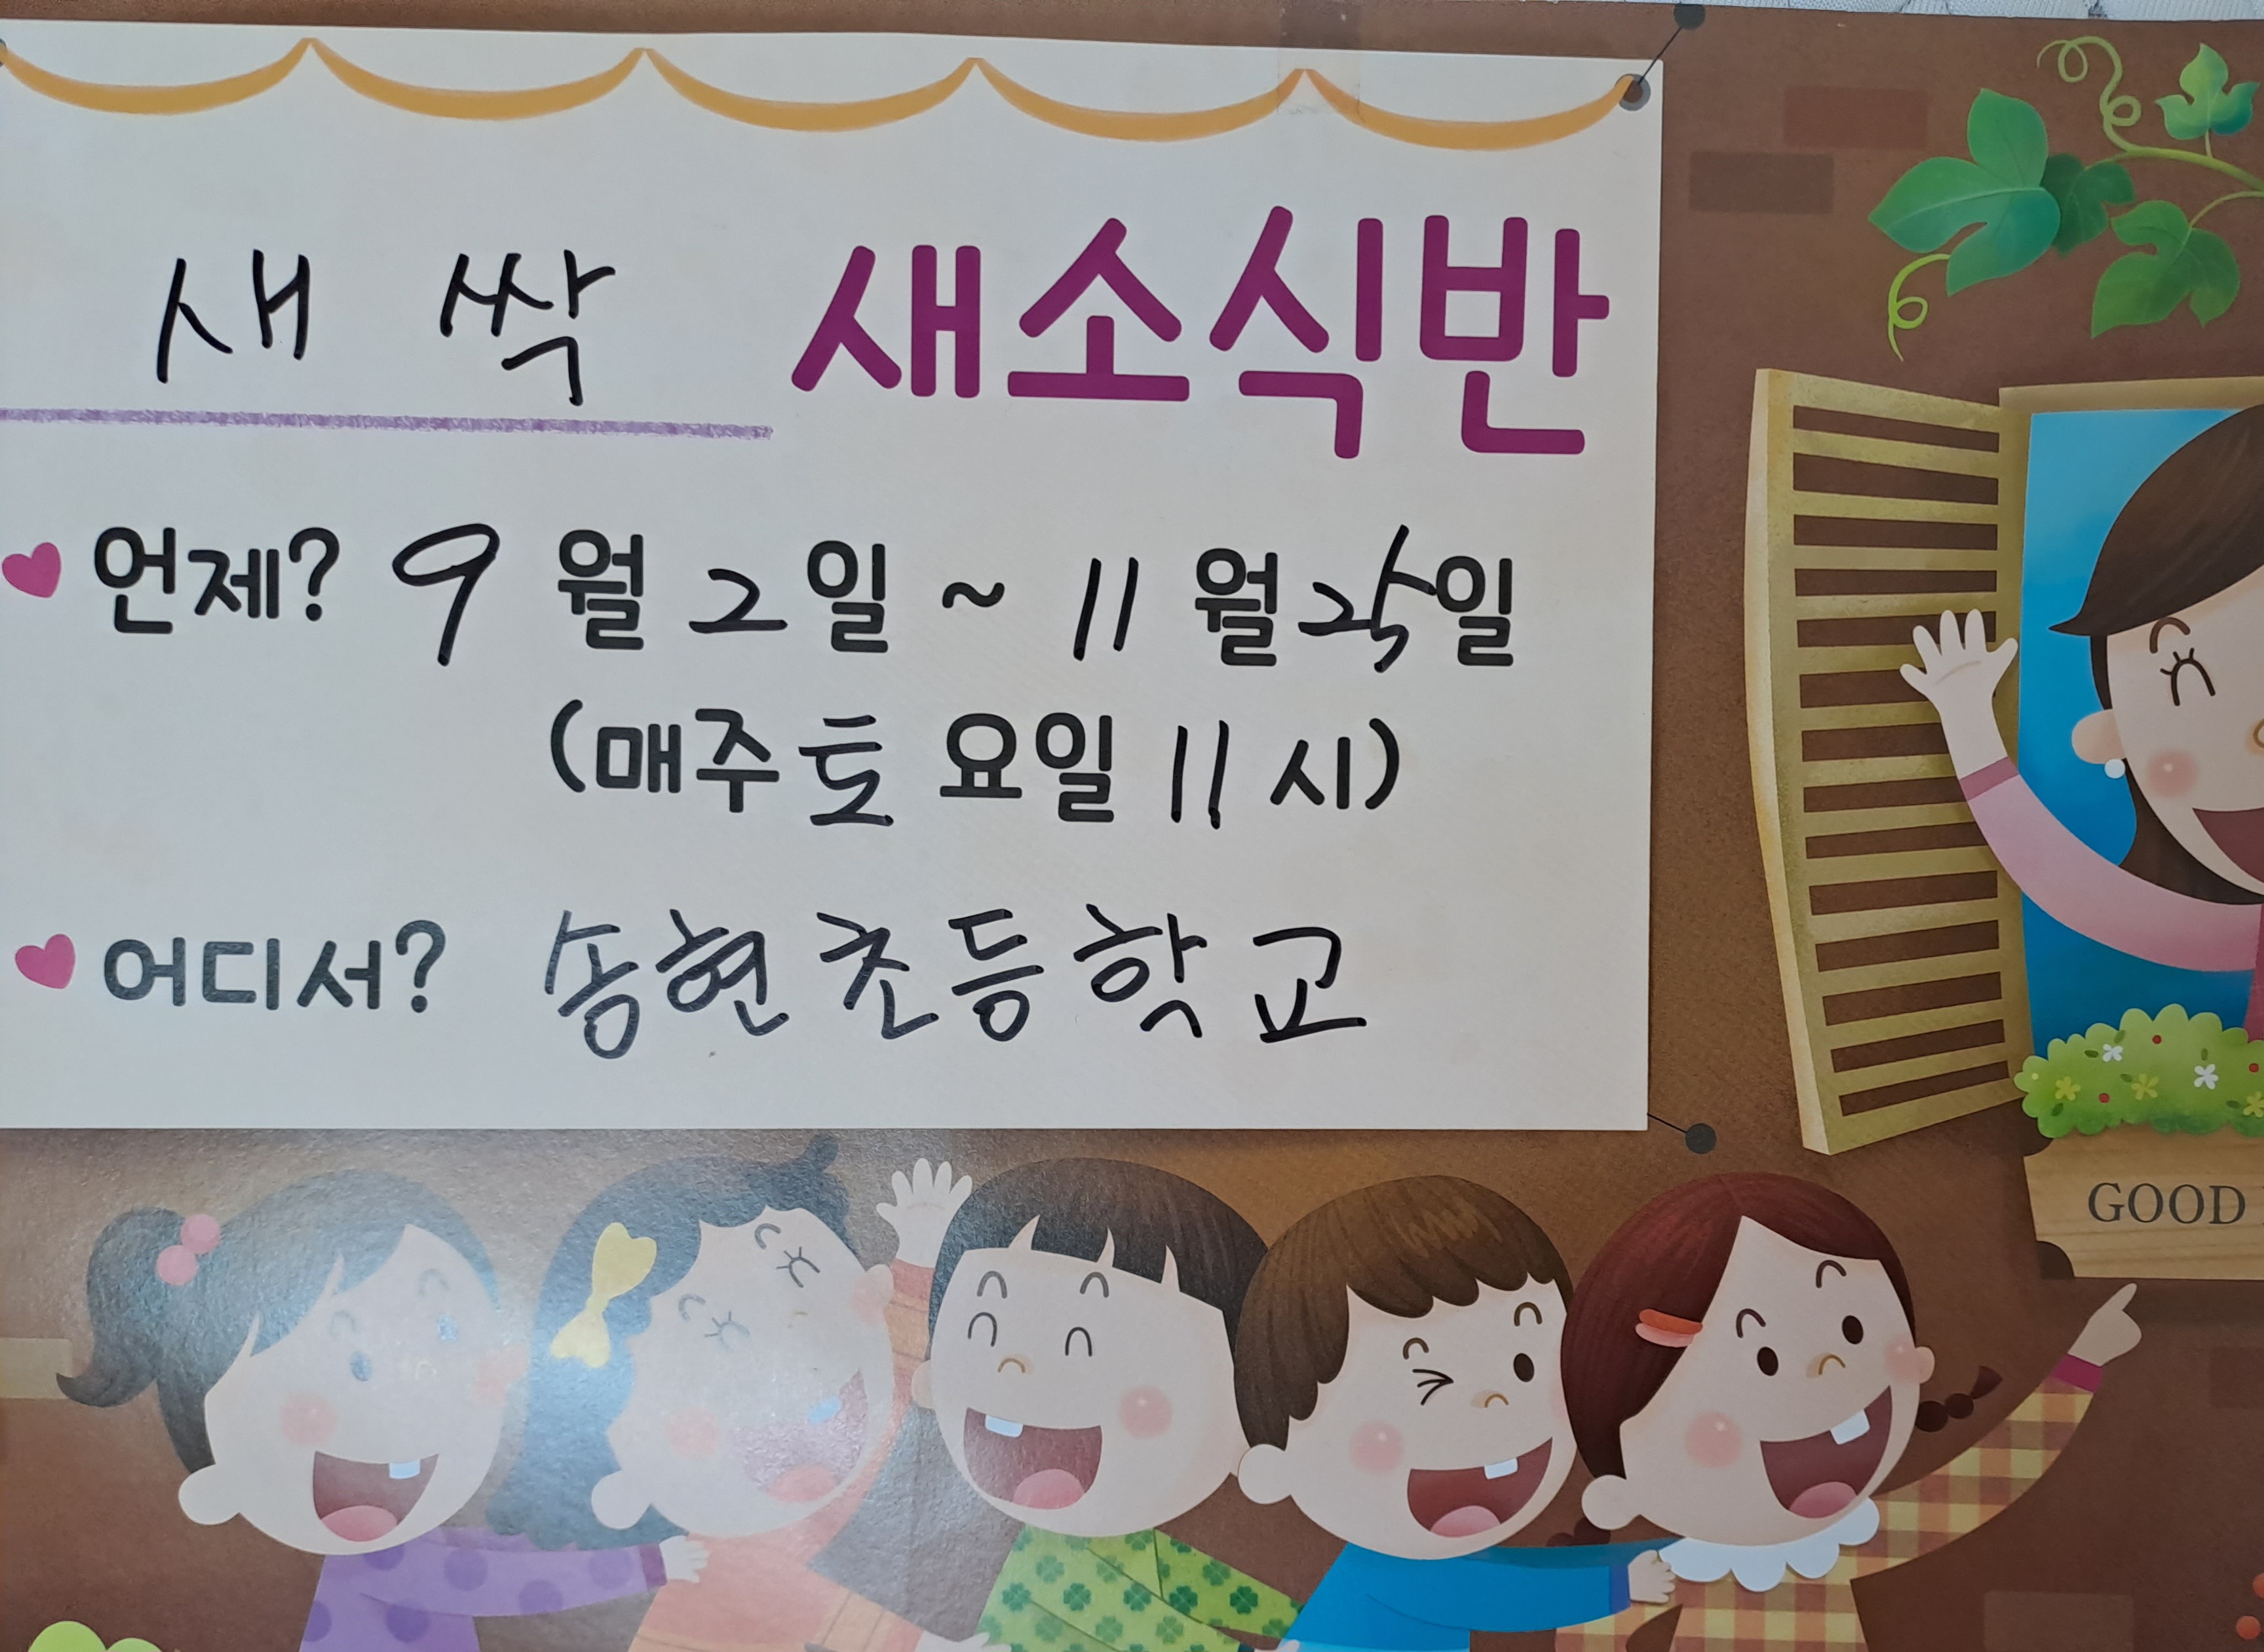 새 싹 새소식반
언제? 9월 2일 ~ 11월 25일
(매주 토요일 11시)
어디서? 송현초등학교
GOOD